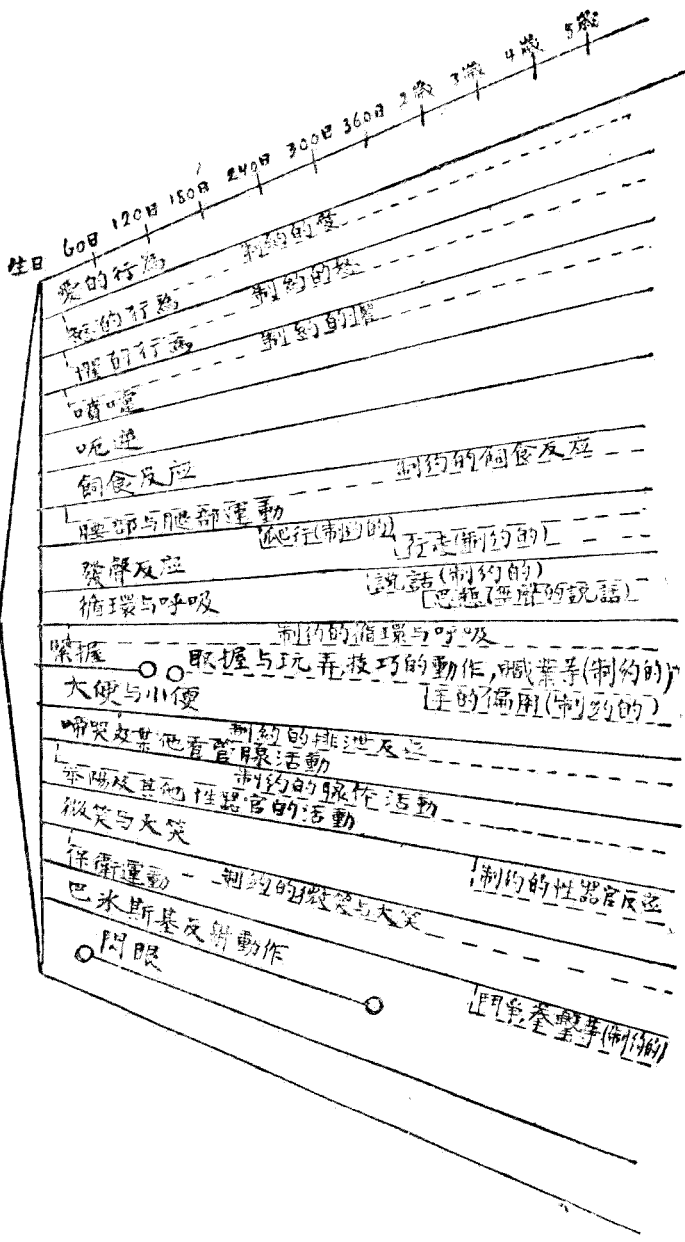 生日 60日 120日 180日 240日 300日 360日 2歲 3歲 4歲 5歲
愛的行為 制約的愛
怒的行為 制約的怒
懼的行為 制約的懼
噴嚏
呃逆
飼食反应 制約的飼食反应
腰部与腿部運動 爬行(制約的) 行走(制約的)
發聲反应 說話(制約的)
思想(無聲的說話)
循環与呼吸 制約的循環与呼吸
緊握 取握与玩弄,技巧的動作,職業等(制約的)
手的偏用(制約的)
大便与小便 制約的排泄反应
啼哭及其他有管腺活動 制約的腺体活動
举陽及其他性器官的活動 制約的性器官反应
微笑与大笑 制約的微笑与大笑
保衛運動 鬥爭,拳擊等(制約的)
巴氷斯基反射動作
閃眼